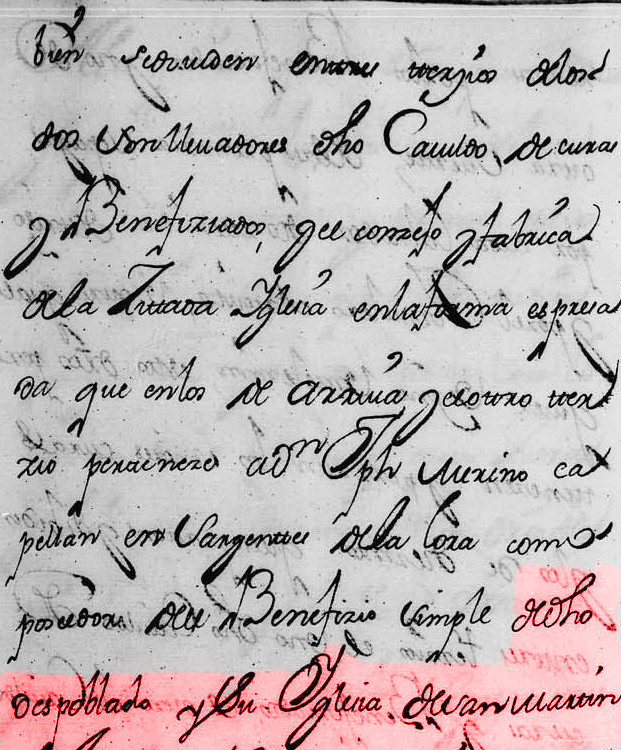 bien se dividen en tres terzios de los
dos son llevadores dho Cavildo de curas
y Benefiziados, y el conzejo y fabrica
de la Zittada Yglesia en la forma espresa
da que en los de arriva y el otro ter
zio perteneze a Dn Jph Merino ca
pellan en Sargentes de la lora como
poseedor del Benefizio simple de dho
despoblado y su Yglesia de san Martin